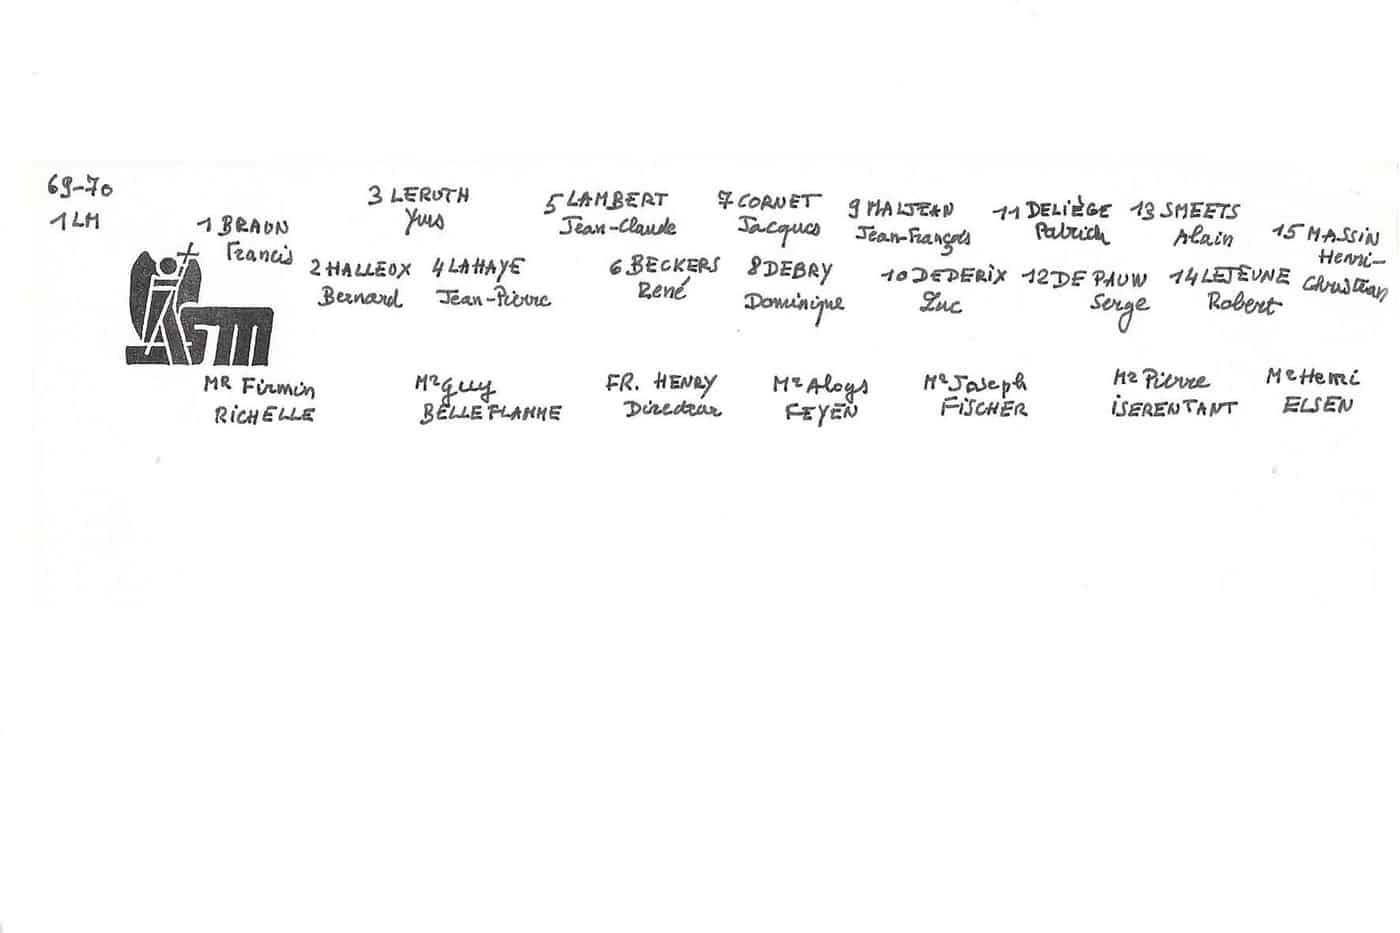 69-70
1 LM
1 BRAUN
Francis
3 LERUTH
Yves
5 LAMBERT
Jean-Claude
7 CORNET
Jacques
9 MALJEAN
Jean-François
11 DELIÈGE
Patrick
13 SMEETS
Alain
15 MASSIN
Henri-
Christian
2 HALLEUX
Bernard
4 LAHAYE
Jean-Pierre
6 BECKERS
René
8 DEBRY
Dominique
10 DEDERIX
Luc
12 DE PAUW
Serge
14 LEJEUNE
Robert
ASM
MR Firmin
RICHELLE
Mr Guy
BELLEFLAMME
FR. HENRY
Directeur
Mr Aloys
FEYEN
Mr Joseph
FISCHER
Mr Pierre
ISERENTANT
Mr Henri
ELSEN